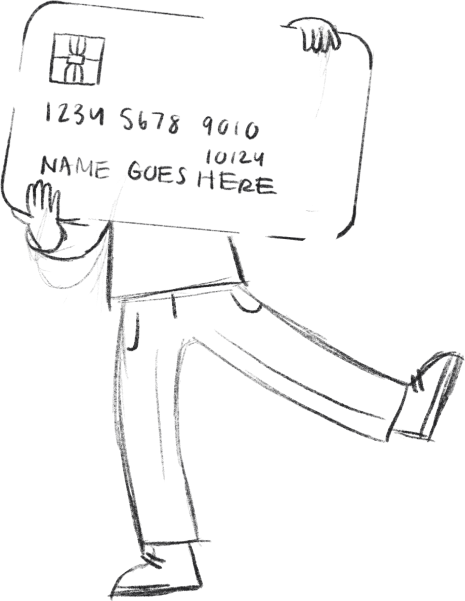 1234 5678 9010
10124
NAME GOES HERE